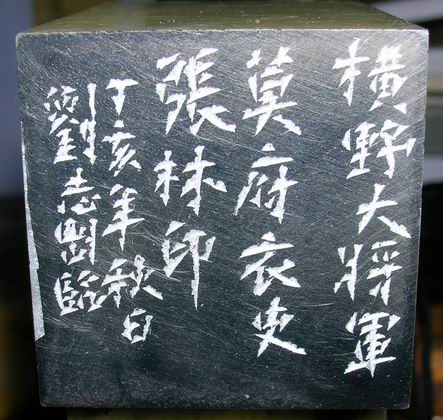 橫野大將軍
莫府卒史
張林印
丁亥年秋日
劉志臨